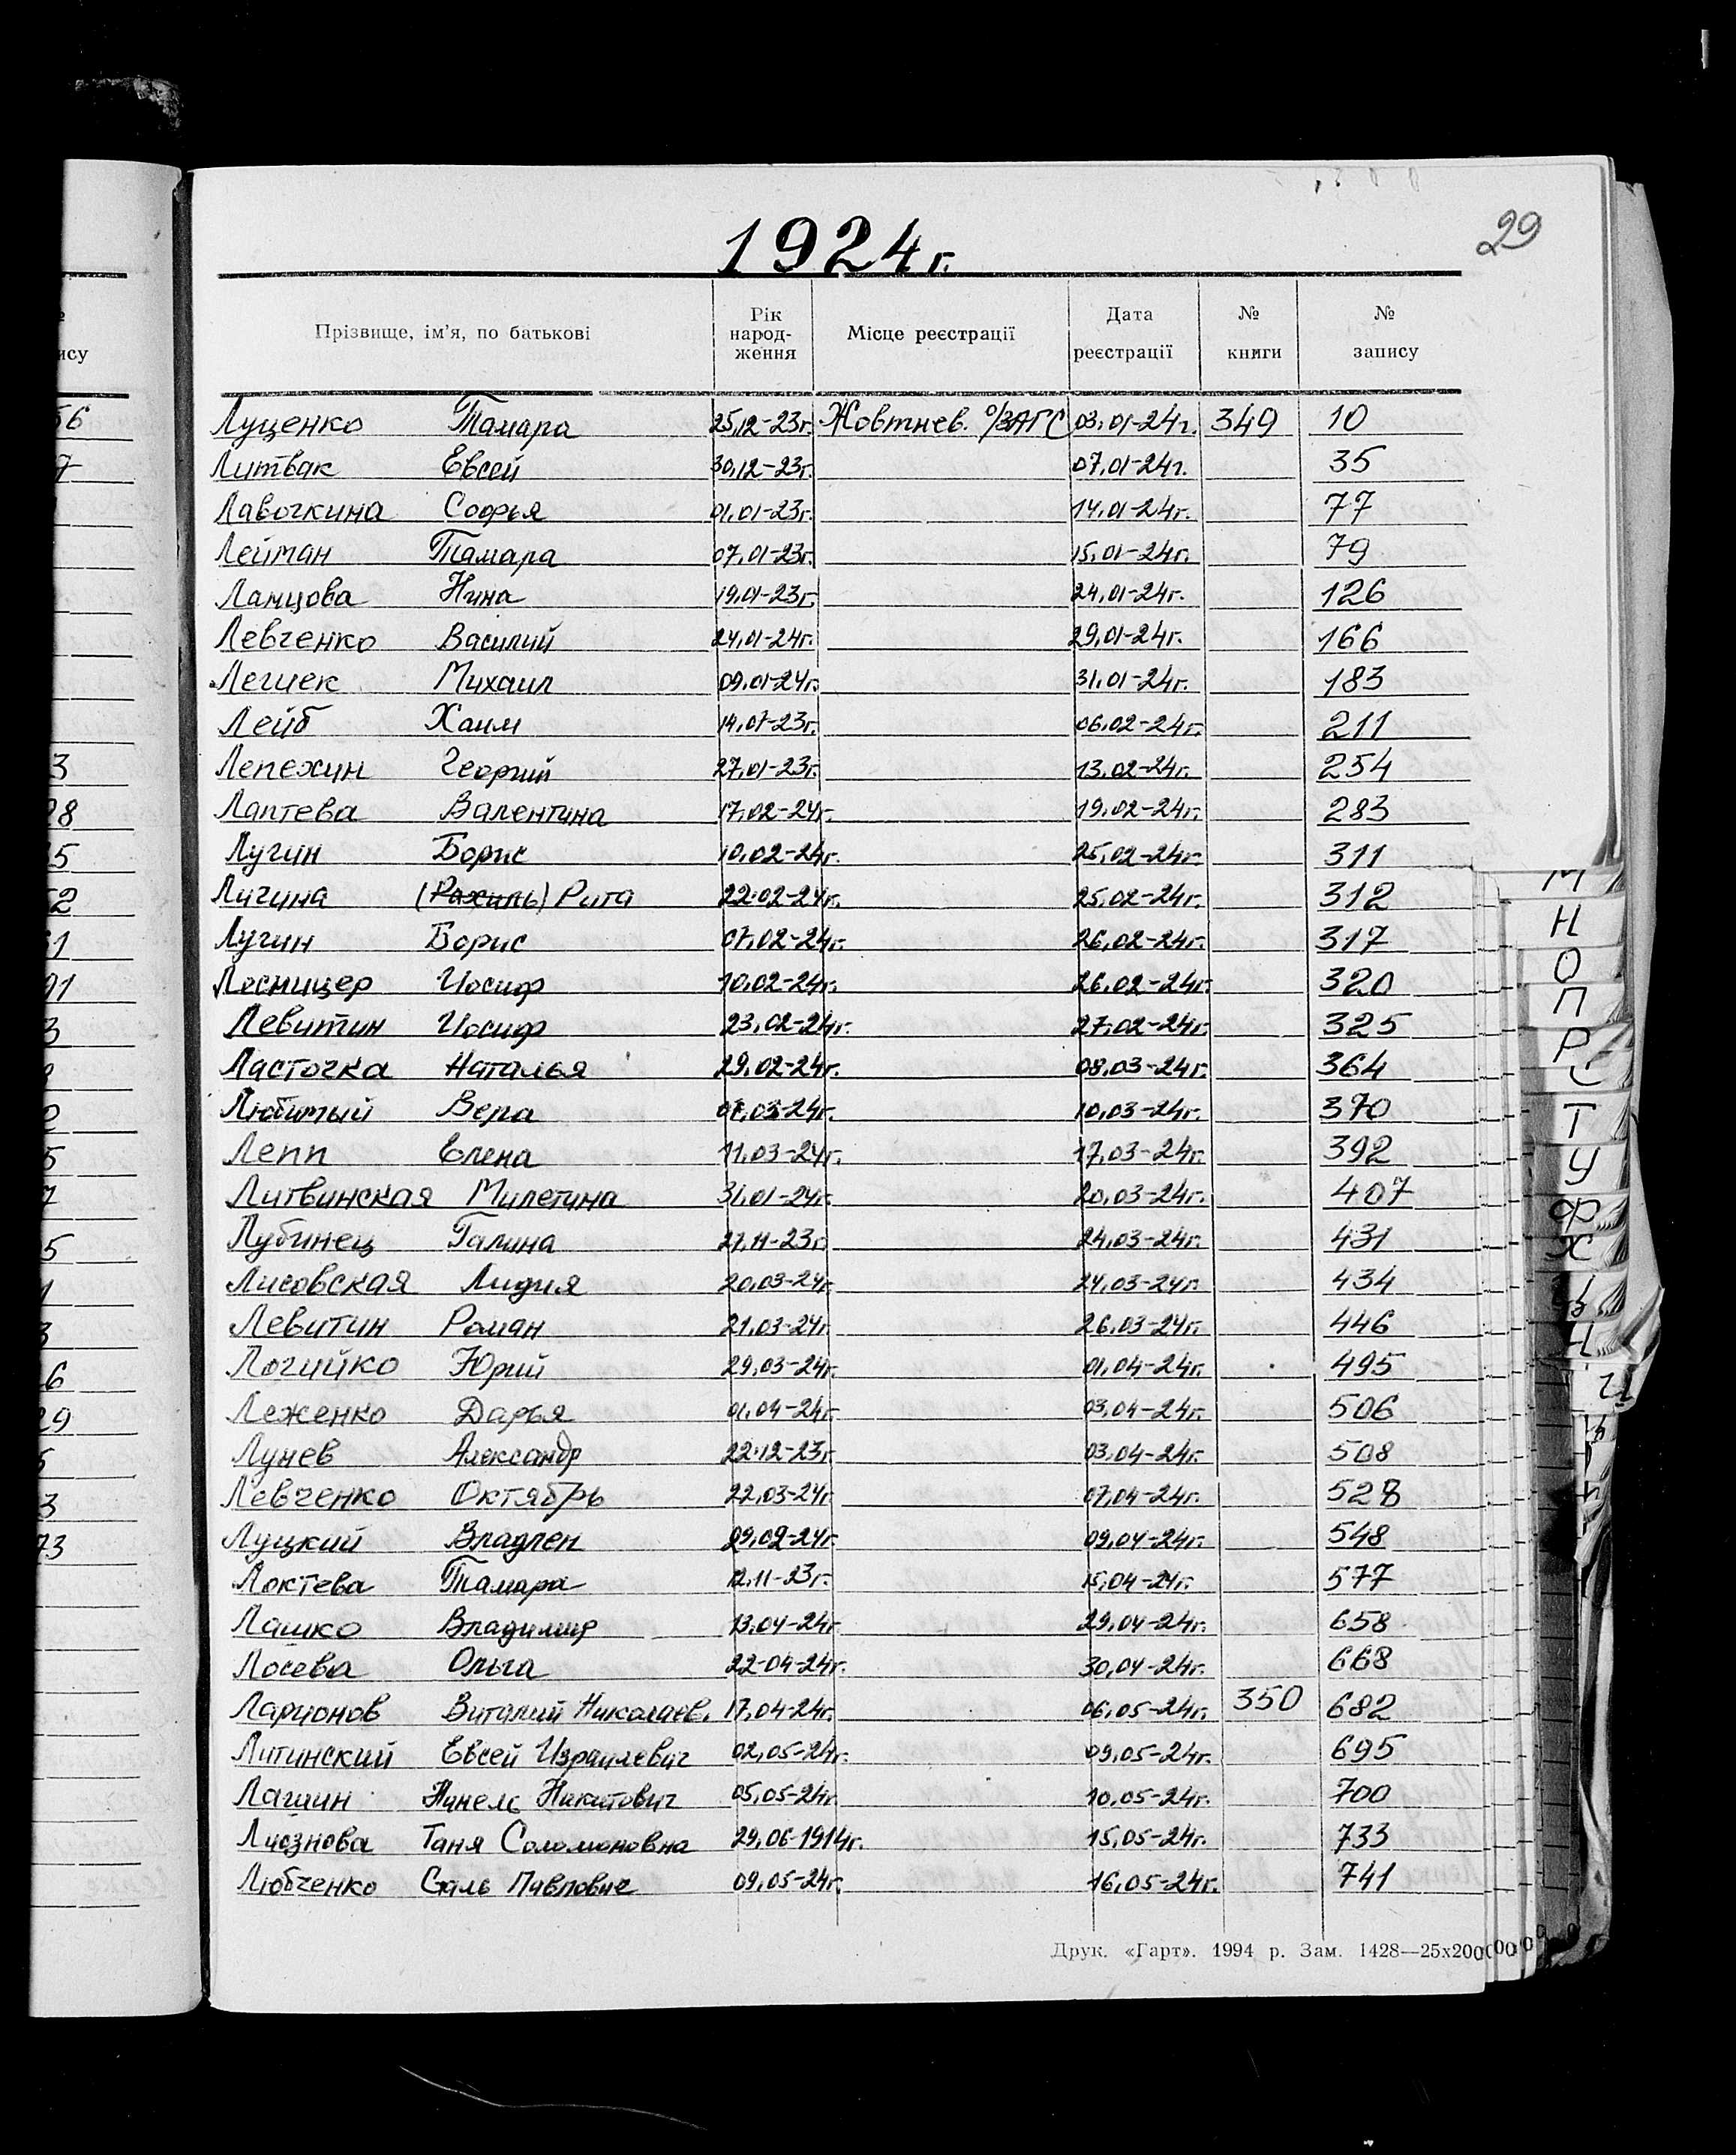 29
1924г.
Прізвище, ім'я, по батькові Рік народ- ження Місце реєстрації Дата реєстрації № книги № запису
Луценко Тамара 25,12-23г. Жовтнев. о/ЗАГС 03.01-24г. 349 10
Литвак Евсей 30,12-23г. 07,01-24г. 35
Лавочкина Софья 01.01-23г. 14.01-24г. 77
Лейтан Тамара 07.01-23г. 15.01-24г. 79
Ланцова Нина 19.01-23г. 24,01-24г. 126
Левченко Василий 24,01-24г. 29,01-24г. 166
Михаил 09.01-24г. 31.01-24г. 183
Лейб Хаим 14,07-23г. 06.02-24г. 211
Лепехин Георгий 27,01-23г. 13.02-24г. 254
Лаптева Валентина 17,02-24г. 19.02-24г. 283
Лугин Борис 10,02-24г. 25,02-24г. 311
Личина (Рахиль) Рита 22.02-24г. 25.02-24г. 312
Лугин Борис 07.02-24г. 26,02-24г. 317
Лосницер Иосиф 10.02-24г. 26.02-24г. 320
Левитин Иосиф 23.02-24г. 27.02-24г. 325
Ласточка Наталья 29.02-24г. 08.03-24г. 364
Любимый Вера 03-24г. 10.03-24г. 370
Лепп Елена 11.03-24г. 17.03-24г. 392
Литвинская Милетина 31.01-24г. 20.03-24г. 407
Лубинец Галина 27,11-23г. 24,03-24г. 431
Лисовская Лидия 20,03-24г. 24,03-24г. 434
Левитин Роман 21.03-24г. 26.03-24г. 446
Логийко Юрий 29,03-24г. 01.04-24г. 495
Леженко Дарья 01.04-24г. 03.04-24г. 506
Лунев Александр 22.12-23г. 03.04-24г. 508
Левченко Октябрь 22.03-24г. 07,04-24г. 528
Луцкий Владлен 09.04-24г. 548
Локтева Тамара 12.11-23г. 15,04-24г. 577
Лашко Владимир 13.04-24г. 29.04-24г. 658
Лосева Ольга 22-04-24г. 30,04-24г. 668
Ларионов Виталий Николаев. 17.04-24г. 06,05-24г. 350 682
Литинский Евсей Израилевич 02,05-24г. 09,05-24г. 695
Лашин Нинель Никитович 05,05-24г. 10,05-24г. 700
Лиознова Таня Соломоновна 29,06-1914г. 15,05-24г. 733
Любченко Сталь Павлович 09,05-24г. 16,05-24г. 741
Друк. «Гарт». 1994 р. Зам. 1428—25х20000
М
Н
О
П
Р
С
Т
У
Ф
Х